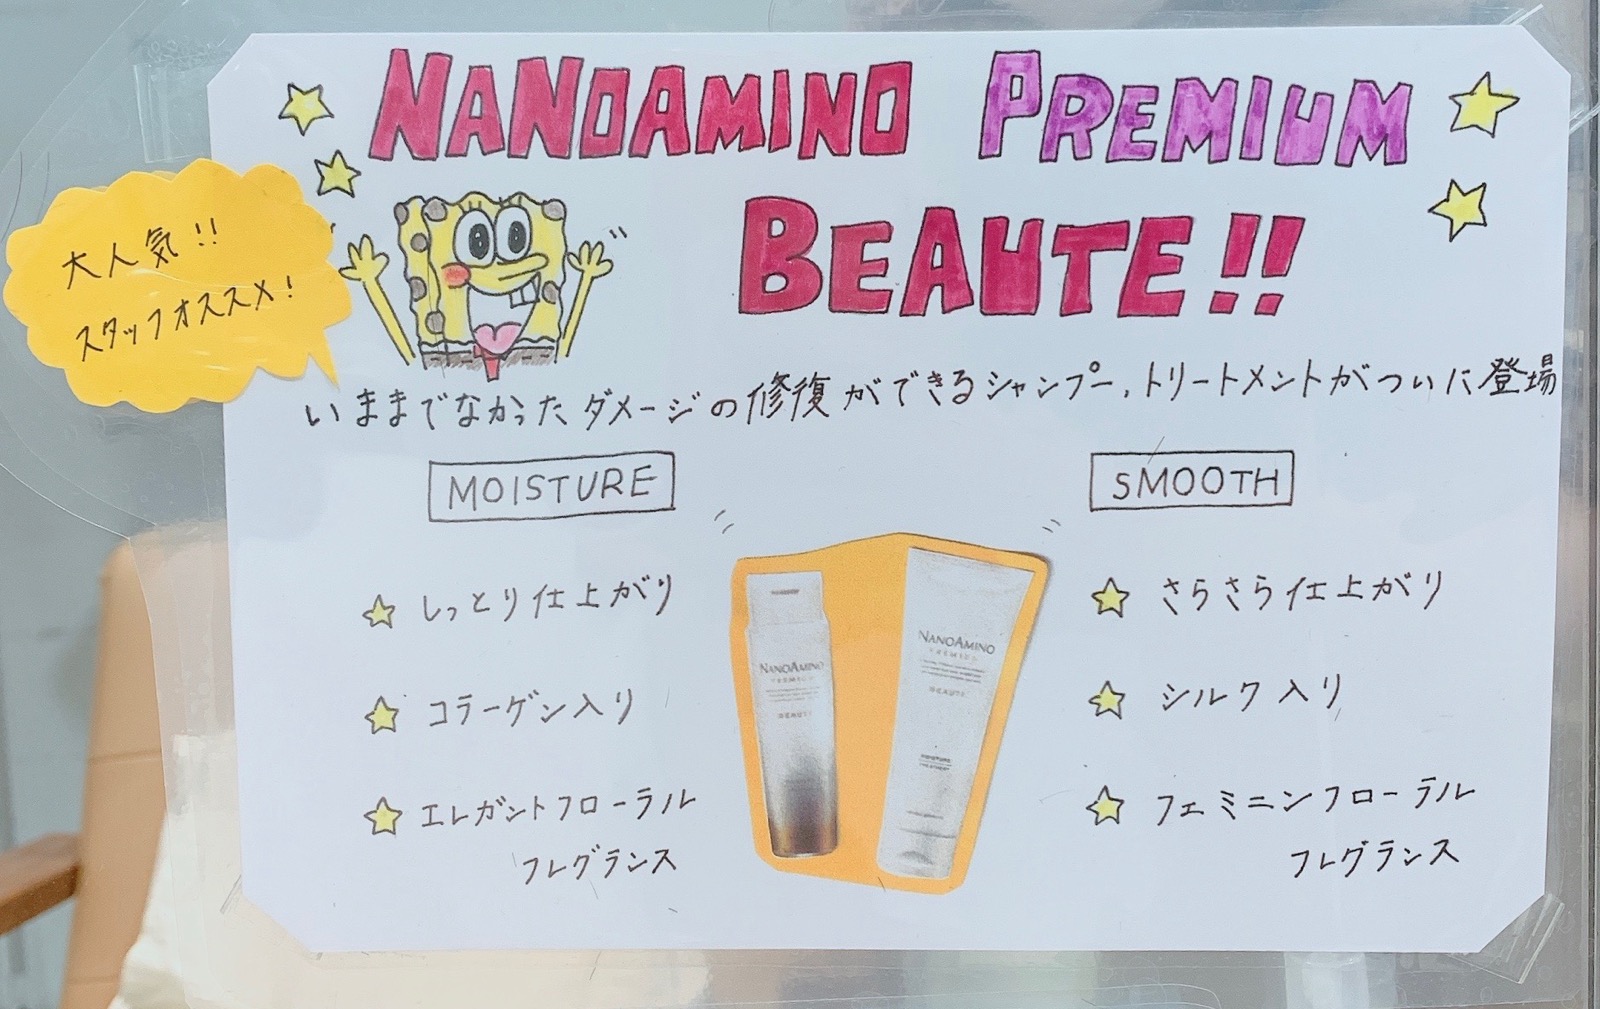 NANOAMINO PREMIUM
BEAUTE!!
大人気!!
スタッフオススメ!
いままでなかったダメージの修復ができるシャンプー,トリートメントがついに登場
MOISTURE
しっとり仕上がり
コラーゲン入り
エレガントフローラル
フレグランス
NANOAMINO
PREMIUM
BEAUTE
NANOAMINO
PREMIUM
BEAUTE
MOISTURE
TREATMENT
SMOOTH
さらさら仕上がり
シルク入り
フェミニンフローラル
フレグランス